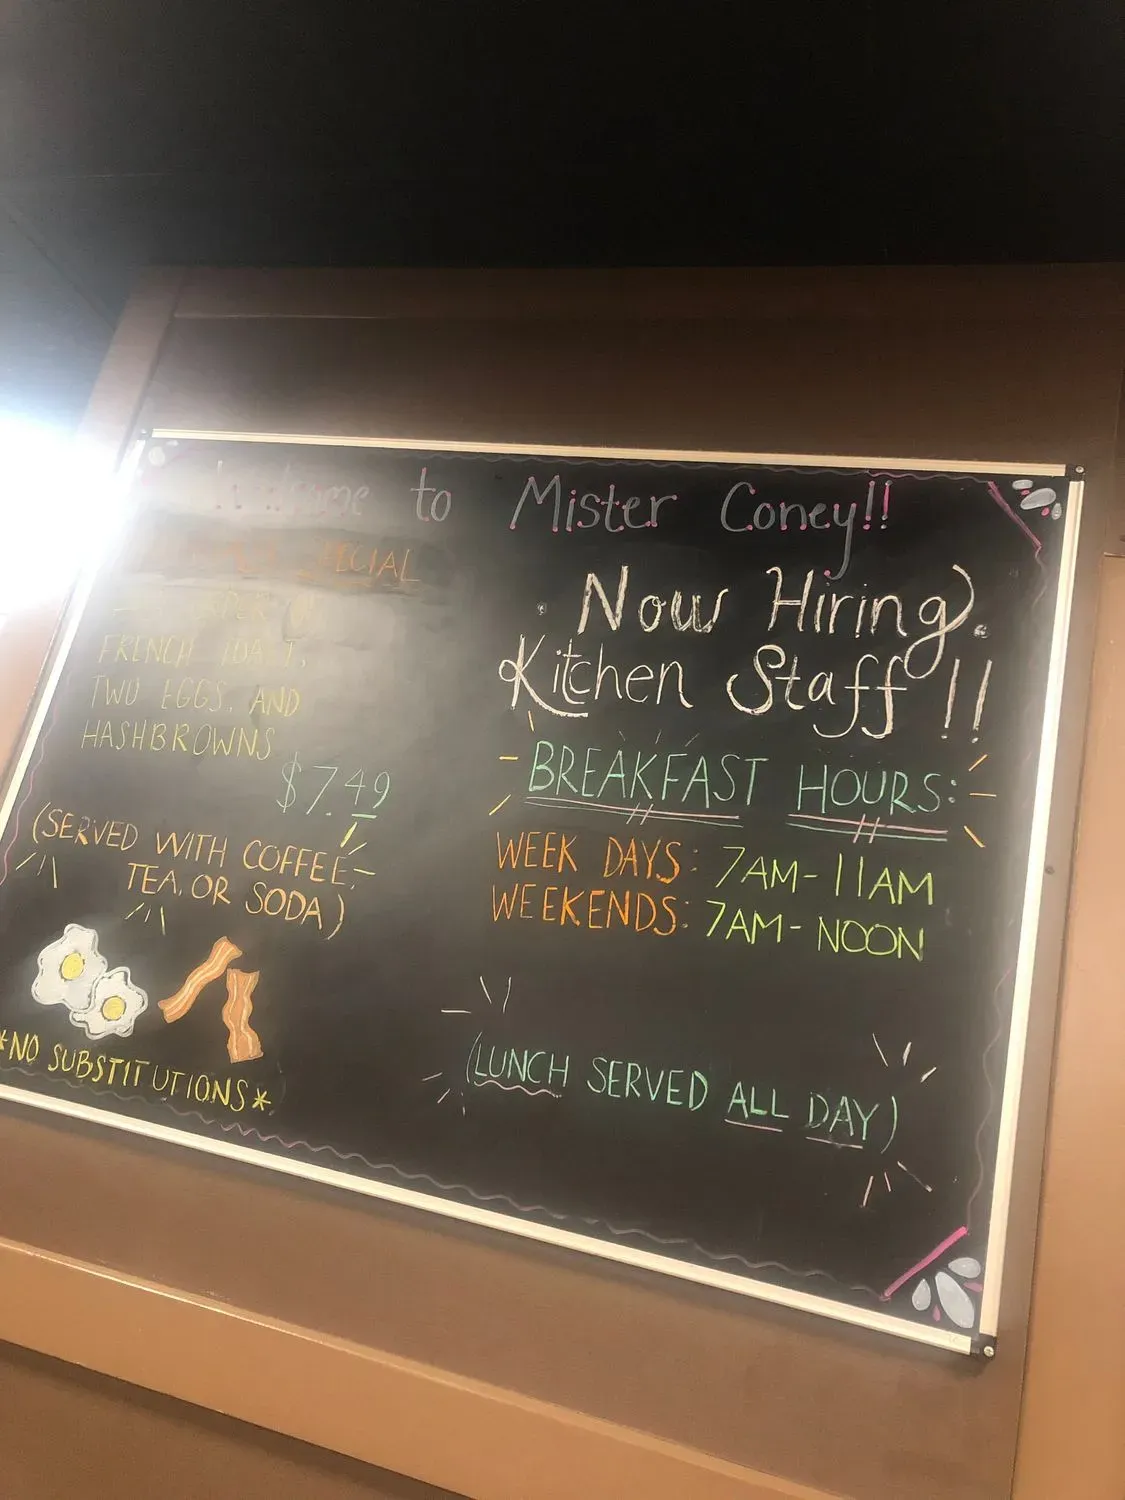 Welcome to Mister Coney!!
SPECIAL
FRENCH TOAST,
TWO EGGS, AND
HASHBROWNS
$7.49
(SERVED WITH COFFEE,
TEA, OR SODA)
*NO SUBSTITUTIONS*
Now Hiring
Kitchen Staff!!
BREAKFAST HOURS:
WEEK DAYS: 7AM-11AM
WEEKENDS: 7AM-NOON
(LUNCH SERVED ALL DAY)